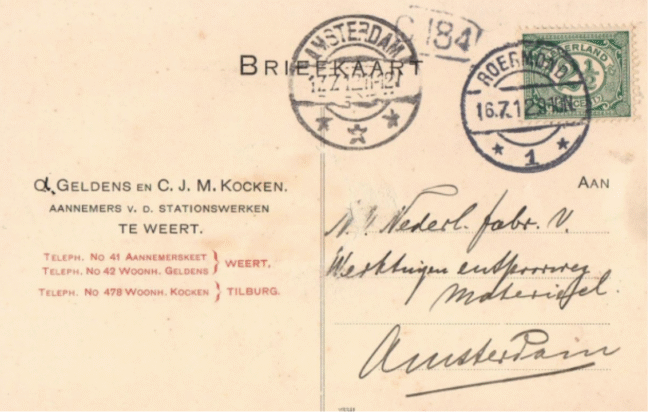 BRIEFKAART
AMSTERDAM
17.7.12.11-12V
C 184
ROERMOND
16.7.12.9-10N
1
NEDERLAND
2½
CENT
Geldens en C. J. M. Kocken.
Aannemers v. d. Stationswerken
te Weert.
Teleph. No 41 Aannemerskeet
Teleph. No 42 Woonh. Geldens } Weert,
Teleph. No 478 Woonh. Kocken } Tilburg.
Aan
N. V. Nederl. fabr. v.
Werktuigen en spoorweg
Materieel.
Amsterdam